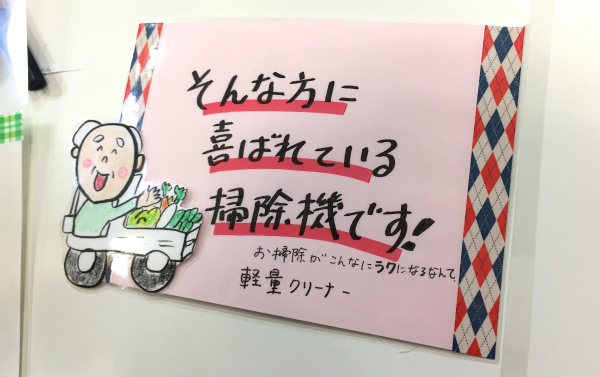 そんな方に
喜ばれている
掃除機です!
お掃除がこんなにラクになるなんて。
軽量クリーナー